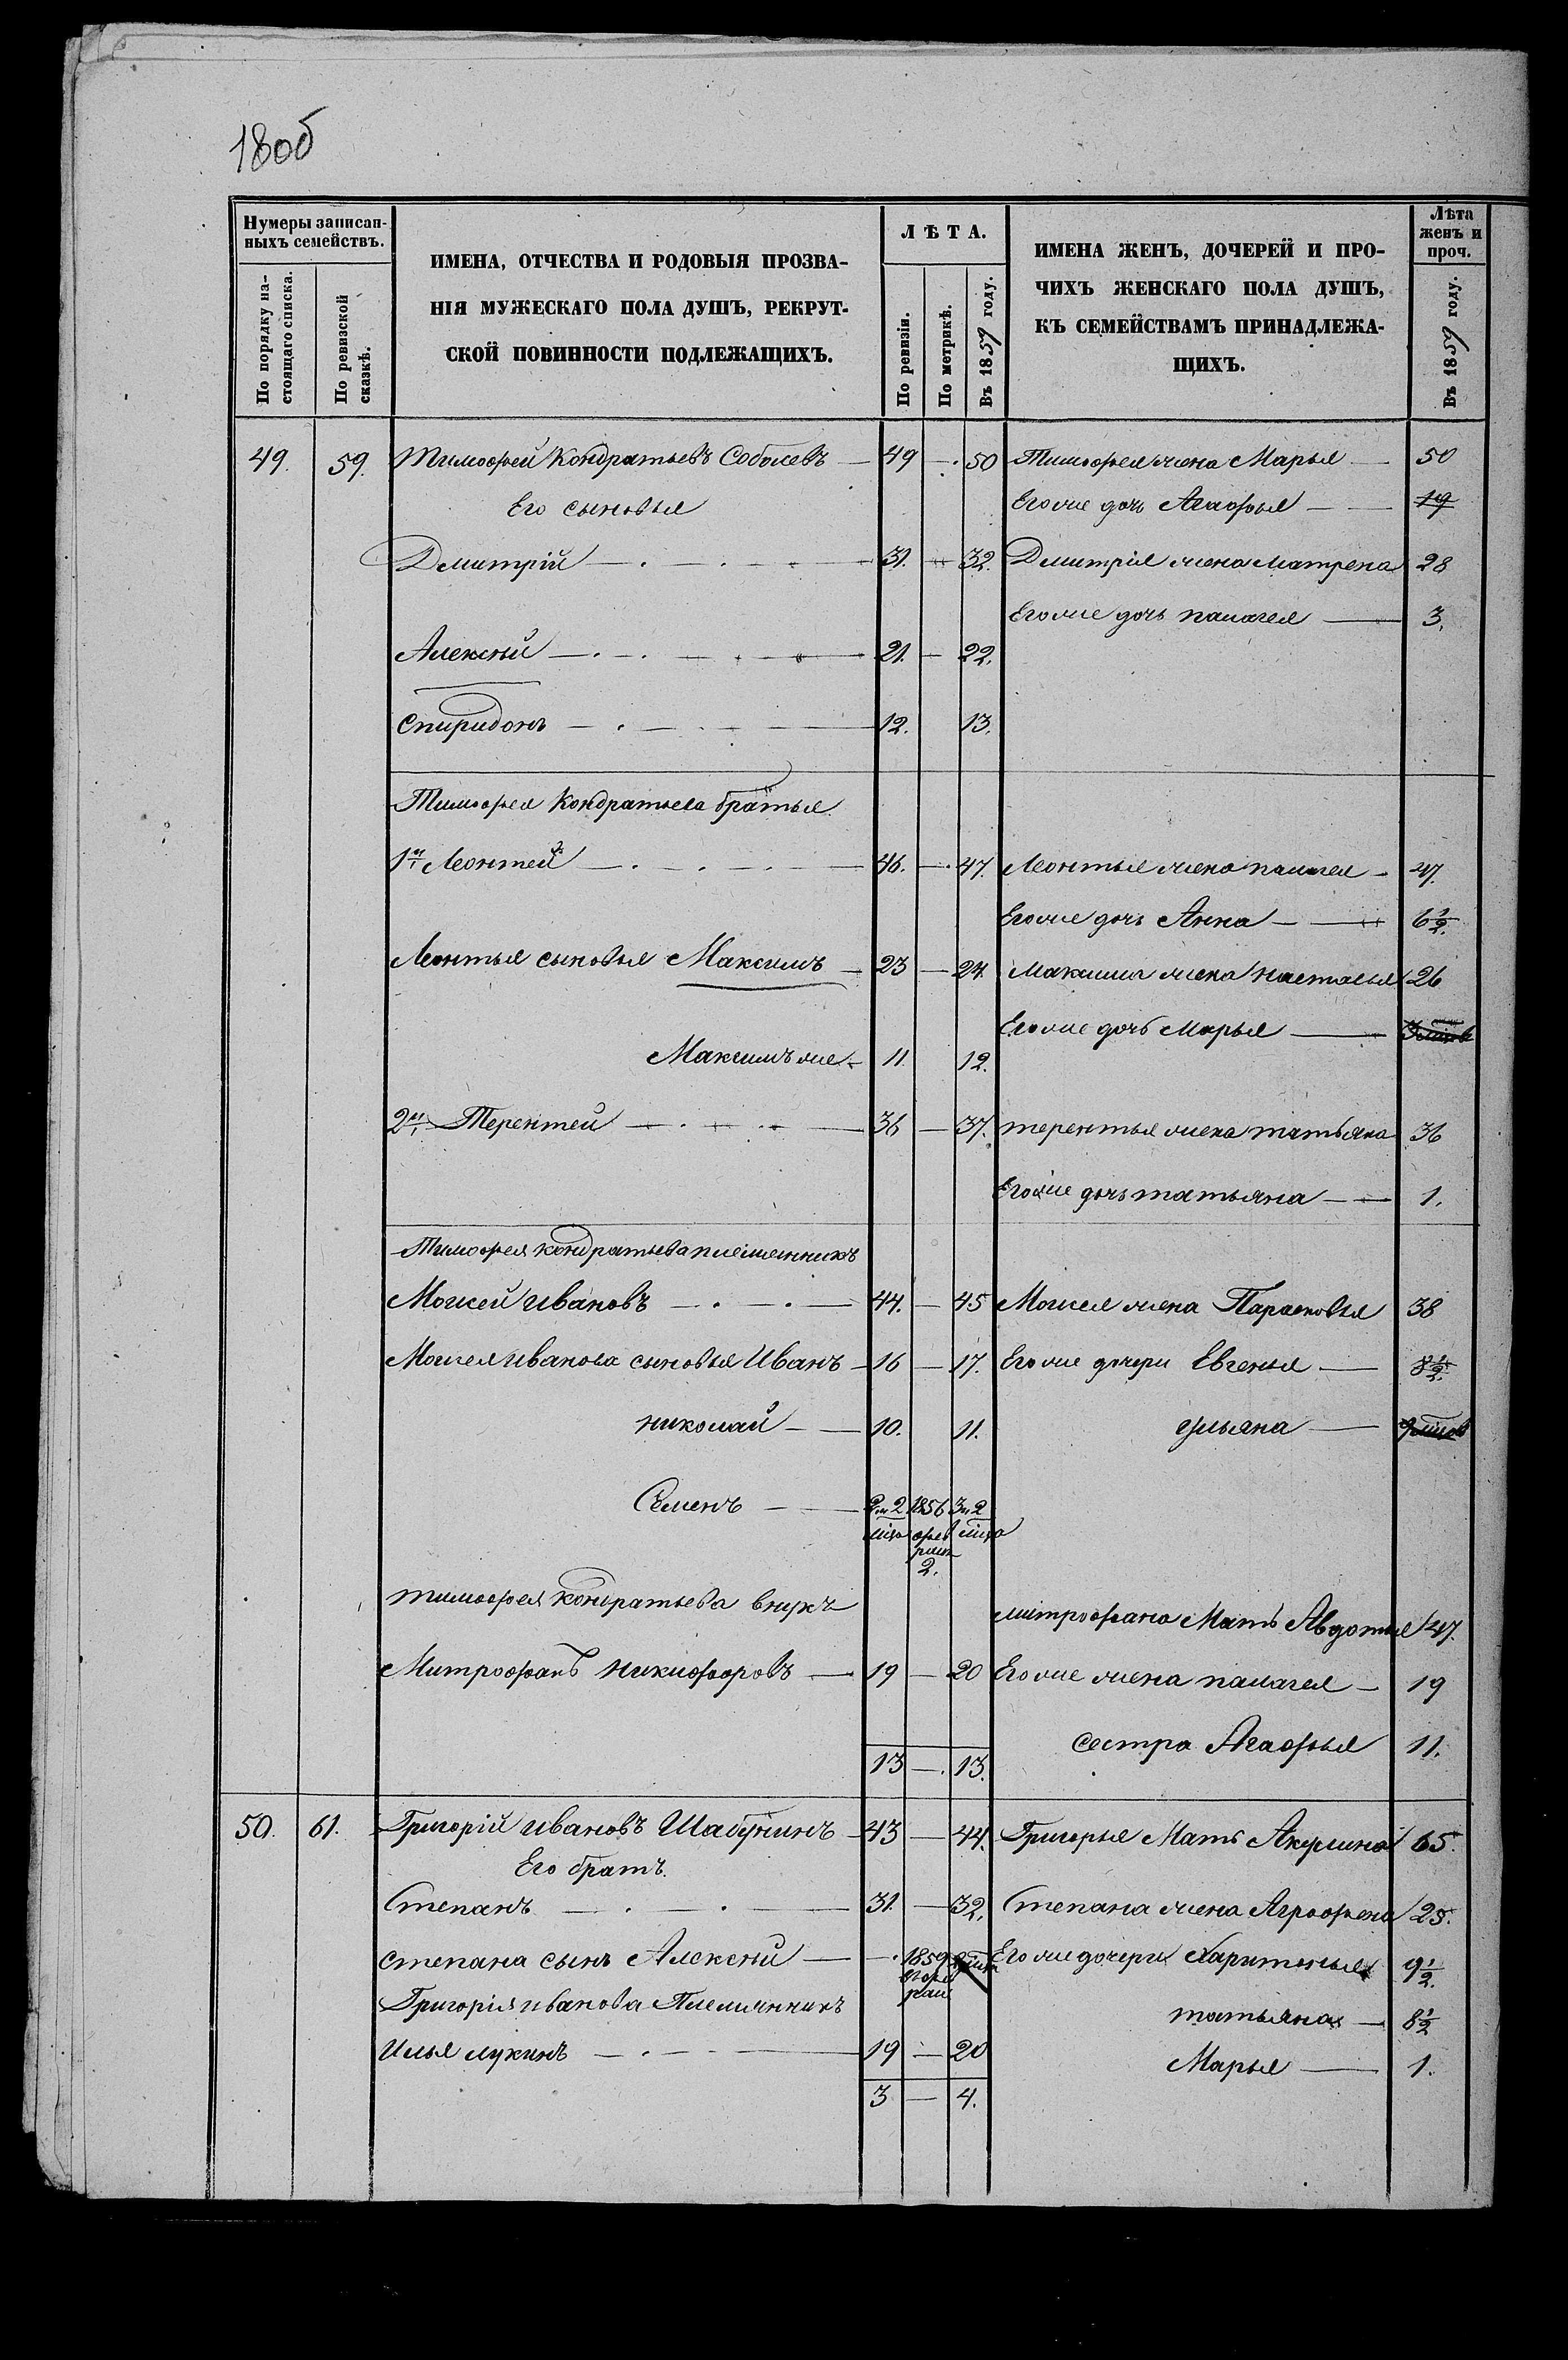 180об
Нумеры записан-
ныхъ семействъ.
По порядку на-
стоящаго списка.
По ревизской
сказкѣ.
ИМЕНА, ОТЧЕСТВА И РОДОВЫЯ ПРОЗВА-
НІЯ МУЖЕСКАГО ПОЛА ДУШЪ, РЕКРУТ-
СКОЙ ПОВИННОСТИ ПОДЛЕЖАЩИХЪ.
ЛѢТА.
По ревизіи.
По метрикѣ.
Въ 1859 году.
ИМЕНА ЖЕНЪ, ДОЧЕРЕЙ И ПРО-
ЧИХЪ ЖЕНСКАГО ПОЛА ДУШЪ,
КЪ СЕМЕЙСТВАМЪ ПРИНАДЛЕЖА-
ЩИХЪ.
Лѣта
женъ и
проч.
Въ 1859 году.
49. 59. Тимофей Кондратьевъ Соболевъ — 49 — 50 Тимофея жена Марья — 50
Его сыновья Его же дочь Агафья — 19
Дмитрій — 31. — 32. Дмитрія жена Матрена 28
Его же дочь палагея — 3.
Алексѣй — 21. — 22.
Спиридонъ — 12. 13.
Тимофея Кондратьева братья
1й Леонтей — 46. — 47. Леонтья жена палагея — 47.
Его же дочь Анна — 6 1/2.
Леонтья сыновья Максимъ — 23 — 24 Максима жена настасья 26
Его же дочь Марья —
Максимъ же — 11 12.
2й Терентей — 36 — 37. терентья жена татьяна 36
Его же дочь татьяна — 1.
Тимофея кондратьева племянникъ
Моисей ивановъ — 44. — 45 Моисея жена Парасковья 38
Моисея иванова сыновья Иванъ — 16 — 17. Его же дочери Евгенья — 8 1/2.
николай — 10. 11. ульяна —
Семенъ — 2 и 2 1856 3 и 2
мѣся февраля мѣся
2.
тимофея кондратьева внукъ митрофана Мать Авдотья 47.
Митрофанъ никифоровъ — 19 — 20 Его же жена палагея — 19
сестра Агафья 11.
13 — 13.
50. 61. Григорій ивановъ Шабунинъ — 43 — 44. Григорья Мать Акулина 65.
Его братъ
Степанъ — 31. — 32. Степана жена Аграфена 25.
степана сынъ Алексѣй — 1859 Его же дочери Харитонья 9 1/2.
Григорія иванова Племянникъ татьяна — 8 1/2
Илья лукинъ — 19 — 20 Марья — 1.
3 — 4.